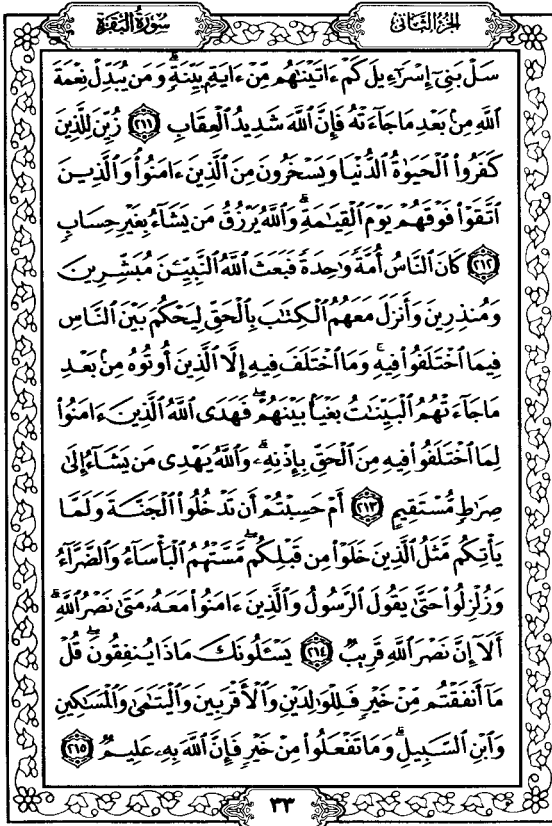 الجزء الثاني
سورة البقرة
سَلْ بَنِىٓ إِسْرَٰٓءِيلَ كَمْ ءَاتَيْنَٰهُم مِّنْ ءَايَةٍۭ بَيِّنَةٍۢ ۗ وَمَن يُبَدِّلْ نِعْمَةَ
ٱللَّهِ مِنۢ بَعْدِ مَا جَآءَتْهُ فَإِنَّ ٱللَّهَ شَدِيدُ ٱلْعِقَابِ ﴿٢١١﴾ زُيِّنَ لِلَّذِينَ
كَفَرُوا۟ ٱلْحَيَوٰةُ ٱلدُّنْيَا وَيَسْخَرُونَ مِنَ ٱلَّذِينَ ءَامَنُوا۟ ۘ وَٱلَّذِينَ
ٱتَّقَوْا۟ فَوْقَهُمْ يَوْمَ ٱلْقِيَٰمَةِ ۗ وَٱللَّهُ يَرْزُقُ مَن يَشَآءُ بِغَيْرِ حِسَابٍۢ
﴿٢١٢﴾ كَانَ ٱلنَّاسُ أُمَّةًۭ وَٰحِدَةًۭ فَبَعَثَ ٱللَّهُ ٱلنَّبِيِّۦنَ مُبَشِّرِينَ
وَمُنذِرِينَ وَأَنزَلَ مَعَهُمُ ٱلْكِتَٰبَ بِٱلْحَقِّ لِيَحْكُمَ بَيْنَ ٱلنَّاسِ
فِيمَا ٱخْتَلَفُوا۟ فِيهِ ۚ وَمَا ٱخْتَلَفَ فِيهِ إِلَّا ٱلَّذِينَ أُوتُوهُ مِنۢ بَعْدِ
مَا جَآءَتْهُمُ ٱلْبَيِّنَٰتُ بَغْيًۢا بَيْنَهُمْ ۖ فَهَدَى ٱللَّهُ ٱلَّذِينَ ءَامَنُوا۟
لِمَا ٱخْتَلَفُوا۟ فِيهِ مِنَ ٱلْحَقِّ بِإِذْنِهِۦ ۗ وَٱللَّهُ يَهْدِى مَن يَشَآءُ إِلَىٰ
صِرَٰطٍۢ مُّسْتَقِيمٍ ﴿٢١٣﴾ أَمْ حَسِبْتُمْ أَن تَدْخُلُوا۟ ٱلْجَنَّةَ وَلَمَّا
يَأْتِكُم مَّثَلُ ٱلَّذِينَ خَلَوْا۟ مِن قَبْلِكُم ۖ مَّسَّتْهُمُ ٱلْبَأْسَآءُ وَٱلضَّرَّآءُ
وَزُلْزِلُوا۟ حَتَّىٰ يَقُولَ ٱلرَّسُولُ وَٱلَّذِينَ ءَامَنُوا۟ مَعَهُۥ مَتَىٰ نَصْرُ ٱللَّهِ ۗ
أَلَآ إِنَّ نَصْرَ ٱللَّهِ قَرِيبٌۭ ﴿٢١٤﴾ يَسْـَٔلُونَكَ مَاذَا يُنفِقُونَ ۖ قُلْ
مَآ أَنفَقْتُم مِّنْ خَيْرٍۢ فَلِلْوَٰلِدَيْنِ وَٱلْأَقْرَبِينَ وَٱلْيَتَٰمَىٰ وَٱلْمَسَٰكِينِ
وَٱبْنِ ٱلسَّبِيلِ ۗ وَمَا تَفْعَلُوا۟ مِنْ خَيْرٍۢ فَإِنَّ ٱللَّهَ بِهِۦ عَلِيمٌۭ ﴿٢١٥﴾
٣٣